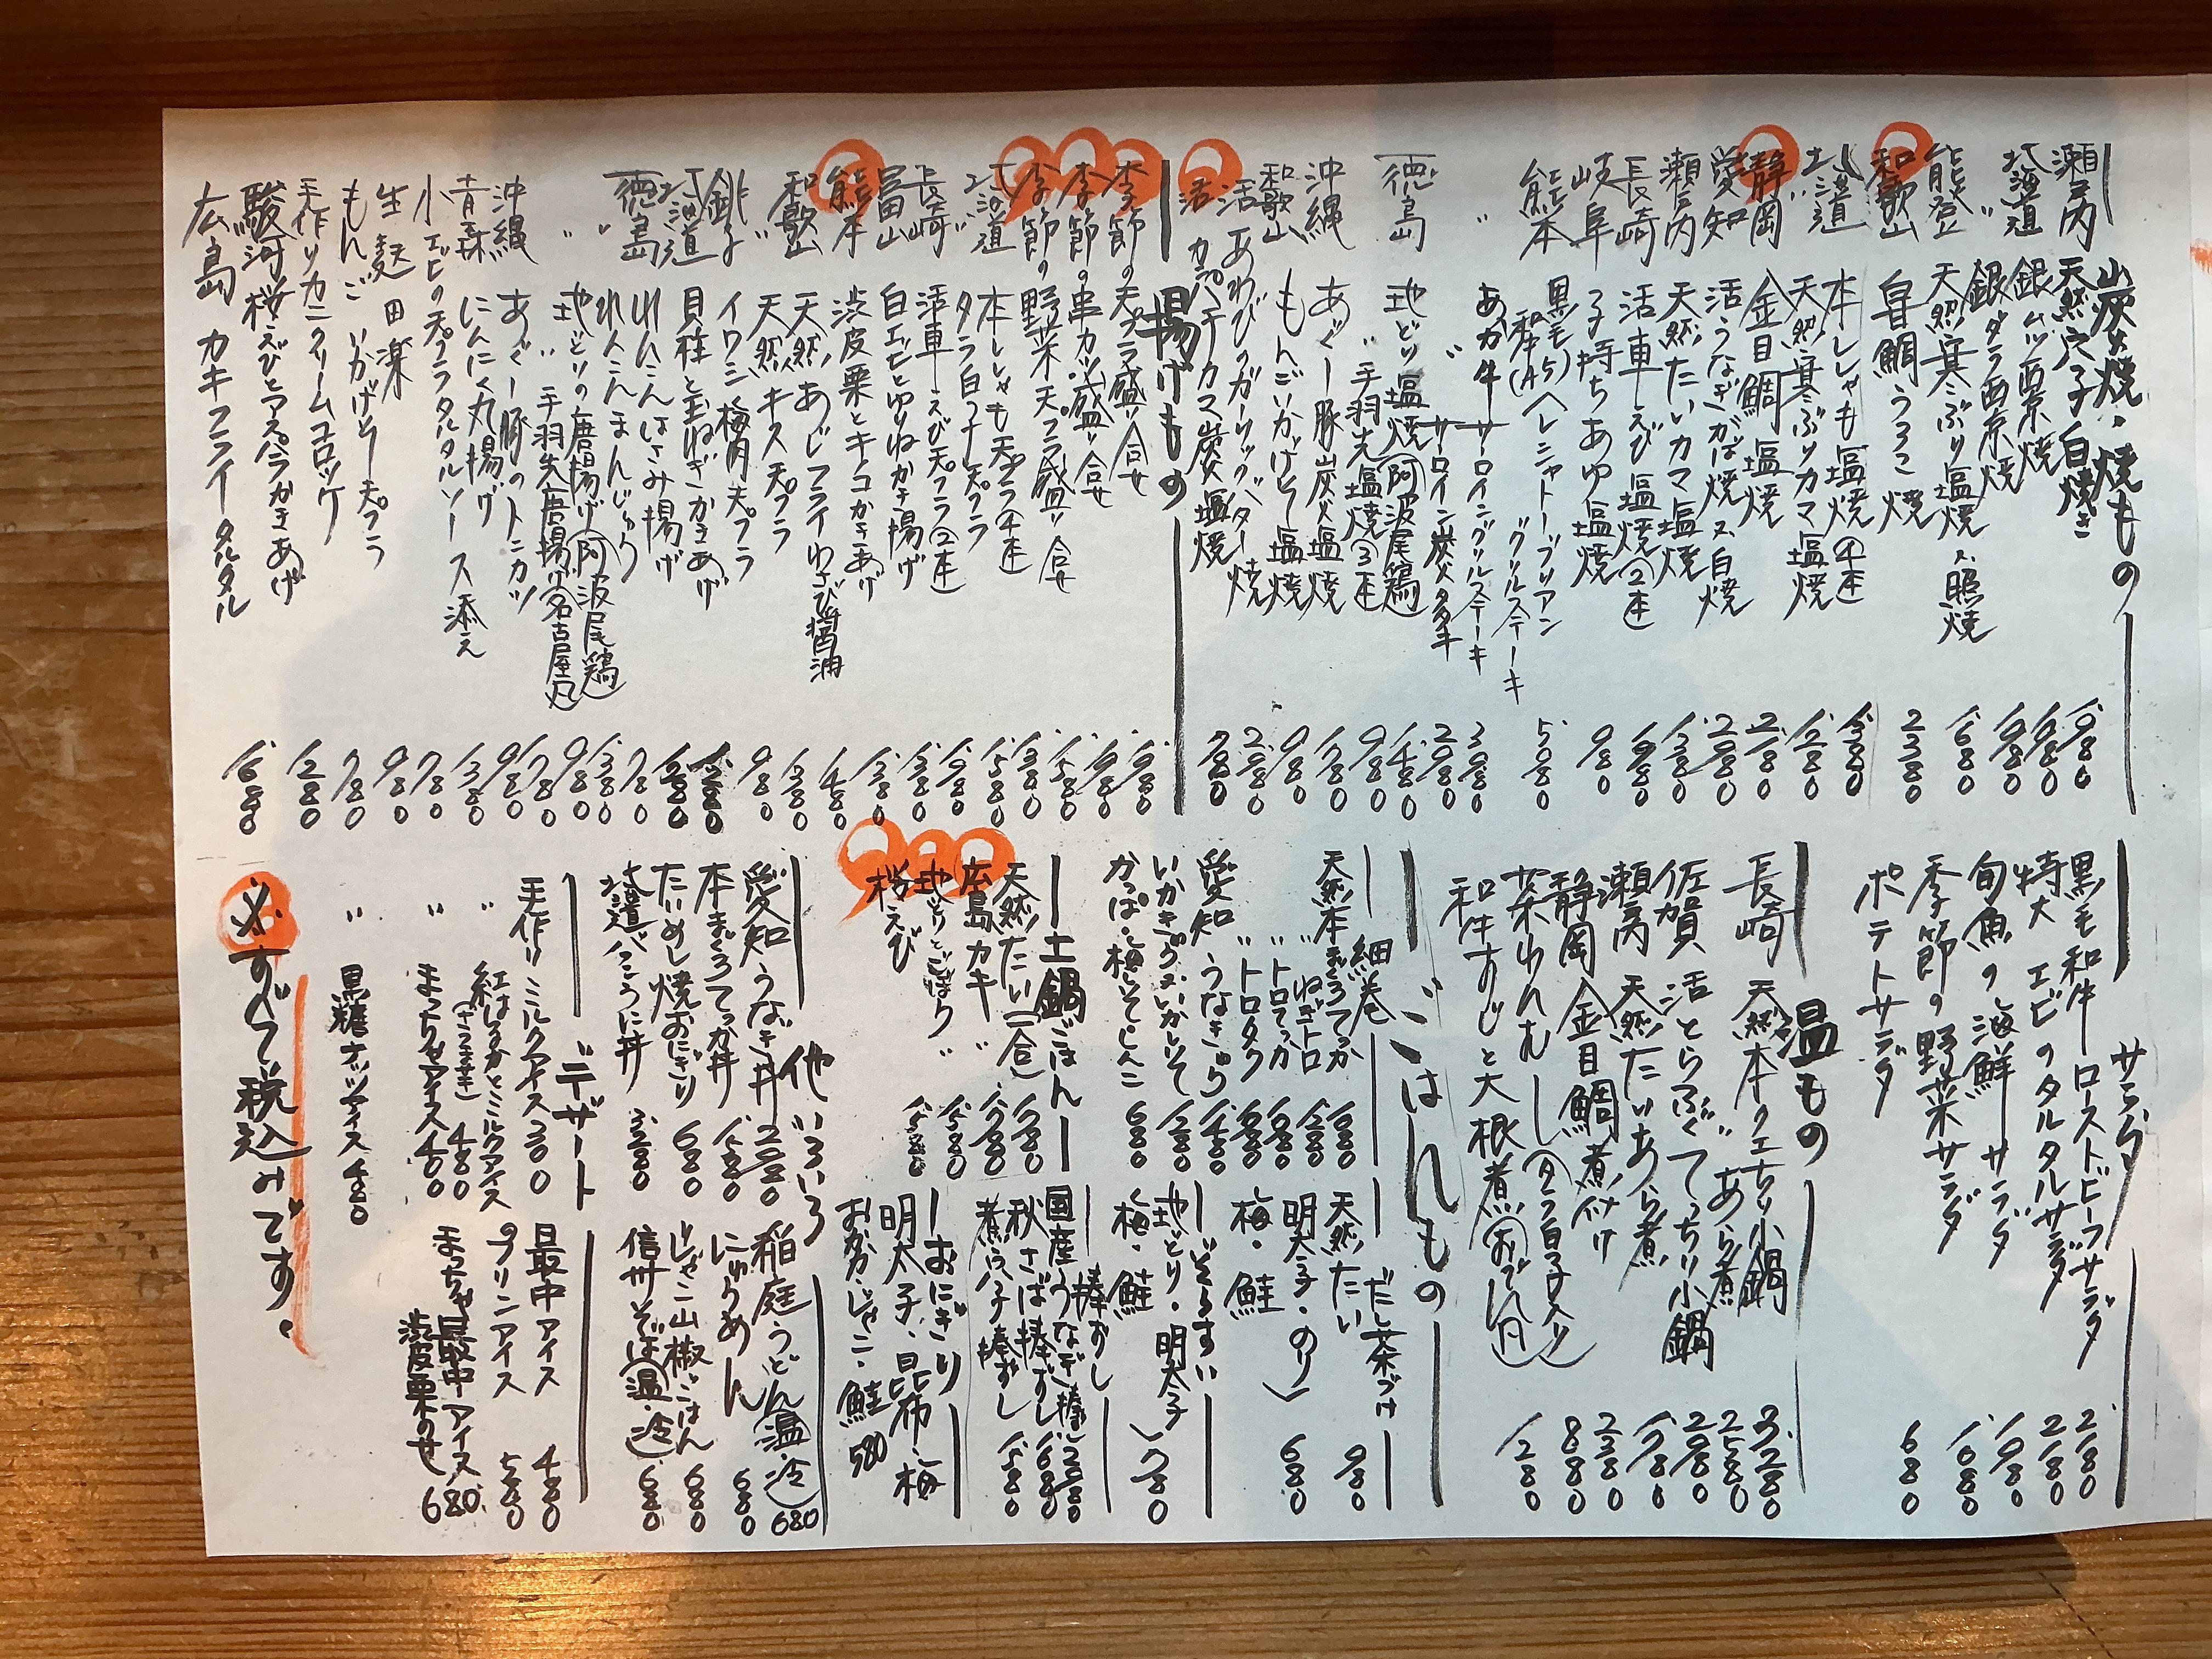 炭火焼・焼もの
瀬戸内 天然穴子白焼き 1980
北海道 銀ムツ西京焼 1980
〃 銀ダラ西京焼 1980
能登 天然寒ぶり塩焼又照焼 1680
和歌山 甘鯛うろこ焼 2380
北海道 本ししゃも塩焼④本 1380
〃 天然寒ぶりカマ塩焼 1280
静岡 金目鯛塩焼 2180
愛知 活うなぎかば焼又白焼 2980
瀬戸内 天然たいカマ塩焼 1380
長崎 活車えび塩焼②本 1980
岐阜 子持ちあゆ塩焼 980
熊本 黒毛和牛(A5)ヘレシャトーブリアングリルステーキ 5080
〃 あか牛サーロイングリルステーキ 3080
〃 サーロイン炭火タタキ 2980
徳島 地どり塩焼(阿波尾鶏) 1480
〃 手羽先塩焼③本 980
沖縄 あぐー豚炭火塩焼 1780
和歌山 もんごいかげそ塩焼 980
活あわびのガーリックバター焼 2980
活カンパチカマ炭火塩焼 780
揚げもの
季節の天プラ盛り合せ 1980
季節の串カツ盛り合せ 1980
季節の野菜天プラ盛り合せ 1580
北海道 本ししゃも天プラ④本 1380
〃 タラ白子天プラ 1580
長崎 活車えび天プラ②本 1980
富山 白エビとゆりねかき揚げ 1380
熊本 渋皮栗とキコかきあげ 1380
〃 天然あじフライわさび醤油 1480
和歌山 天然キス天プラ 1380
〃 イワシ梅肉天プラ 980
銚子
北海道 貝柱と玉ねぎかきあげ 1280
れんこんはさみ揚げ
れんこんまんじゅう 780
徳島 地どりの唐揚げ(阿波尾鶏) 1380
〃 手羽先唐揚げ(名古屋風) 980
沖縄 あぐー豚のトンカツ 1780
青森 にんにく丸揚げ 980
小エビの天プラタルタルソース添え 1380
生麩田楽 780
もんごいかげそ天プラ 980
手作りカニクリームコロッケ 780
駿河桜えびとアスパラかきあげ 1280
広島 カキフライタルタル 1680
サラダ
黒毛和牛ローストビーフサラダ 2180
特大エビのタルタルサラダ 2180
旬魚の海鮮サラダ 1980
季節の野菜サラダ 1080
ポテトサラダ 680
温もの
長崎 天然本クエちり小鍋 3280
〃 あら煮 2580
佐賀 活とらふぐてっちり小鍋 2980
瀬戸内 天然たいあら煮 1780
静岡 金目鯛煮付け 2380
茶わんむし(タラ白子入り) 880
和牛すじと大根煮(おでん風) 1280
ごはんもの
細巻
天然本まぐろてっか 1680
〃 ねぎトロ 1580
〃 トロてっか 1680
〃 トロタク 1680
愛知 うなきゅう 1480
いかきゅう又いかしそ 1280
かっぱ・梅しそしんこ 680
だし茶づけ
天然たい 980
明太子・のり
梅・鮭 680
ぞうすい
地どり・明太子
梅・鮭 780
土鍋ごはん
天然たい(一合) 1780
広島カキ 〃 1780
地どりとごぼう 〃 1580
桜えび 1580
棒ずし
国産うなぎ棒ずし 2980
秋さば棒ずし 1680
煮穴子棒ずし 1580
おにぎり
明太子・昆布・梅
おかか・じゃこ・鮭 580
他いろいろ
愛知うなぎ丼 2980
本まぐろてっか丼 1580
たいめし焼おにぎり 680
北海道バフンうに丼 3280
稲庭うどん(温・冷) 680
にゅうめん 680
じゃこ山椒ごはん 680
信州そば(温・冷) 680
デザート
手作りミルクアイス 300
〃 紅はるかとミルクアイス(さつまいも) 480
〃 まっちゃアイス 400
〃 黒糖ナッツアイス 480
最中アイス 480
プリンアイス 580
まっちゃ最中アイス 渋皮栗のせ 680
※すべて税込みです。